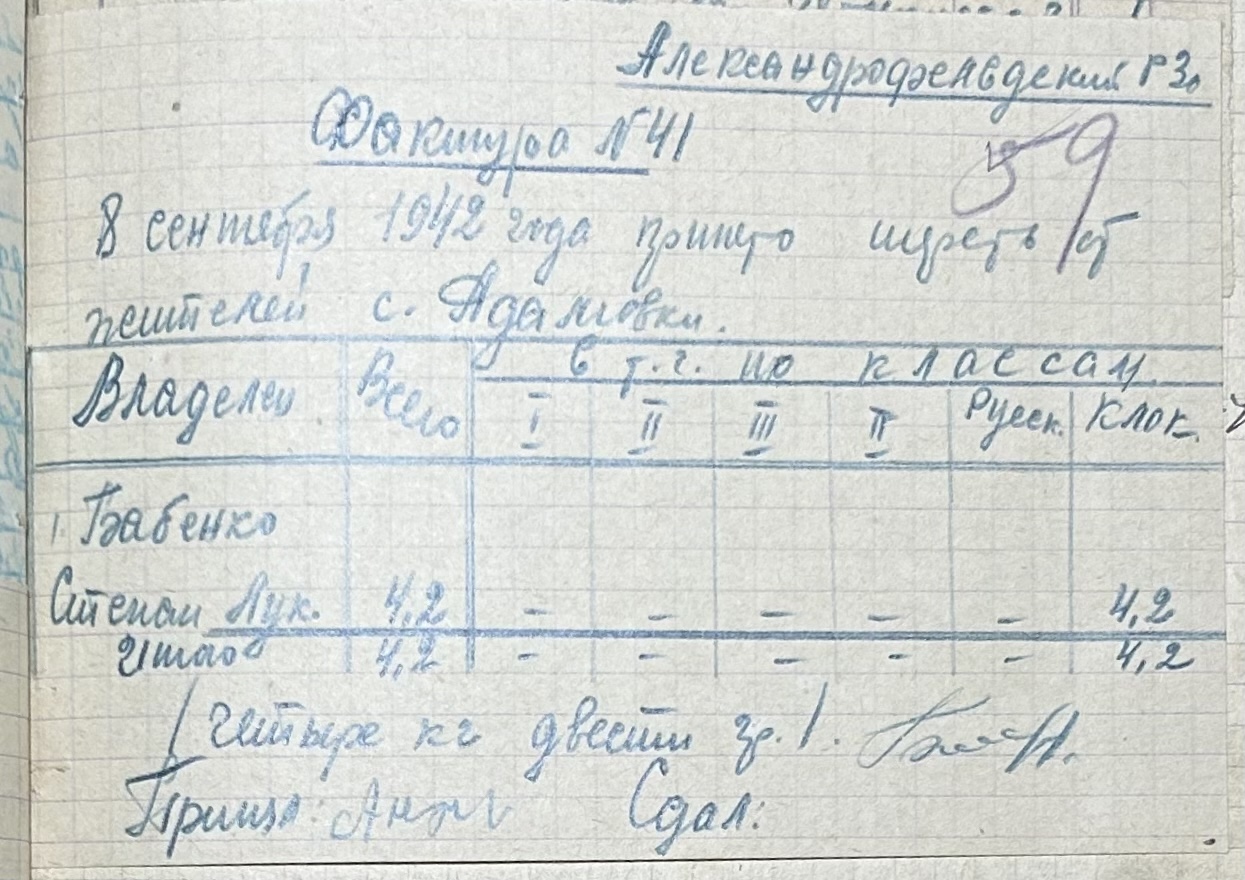 Александрофельдский РЗо
Фактура №41
59
8 сентября 1942 года принято шерсть от
жителей с. Адамовки.
Владелец Всего в т.ч. по классам
I II III II Русск. Клок.
1. Бабенко
Степан Лук. 4,2 - - - - - 4,2
Итого 4,2 - - - - - 4,2
/четыре кг двести гр./.
Принял: Сдал: